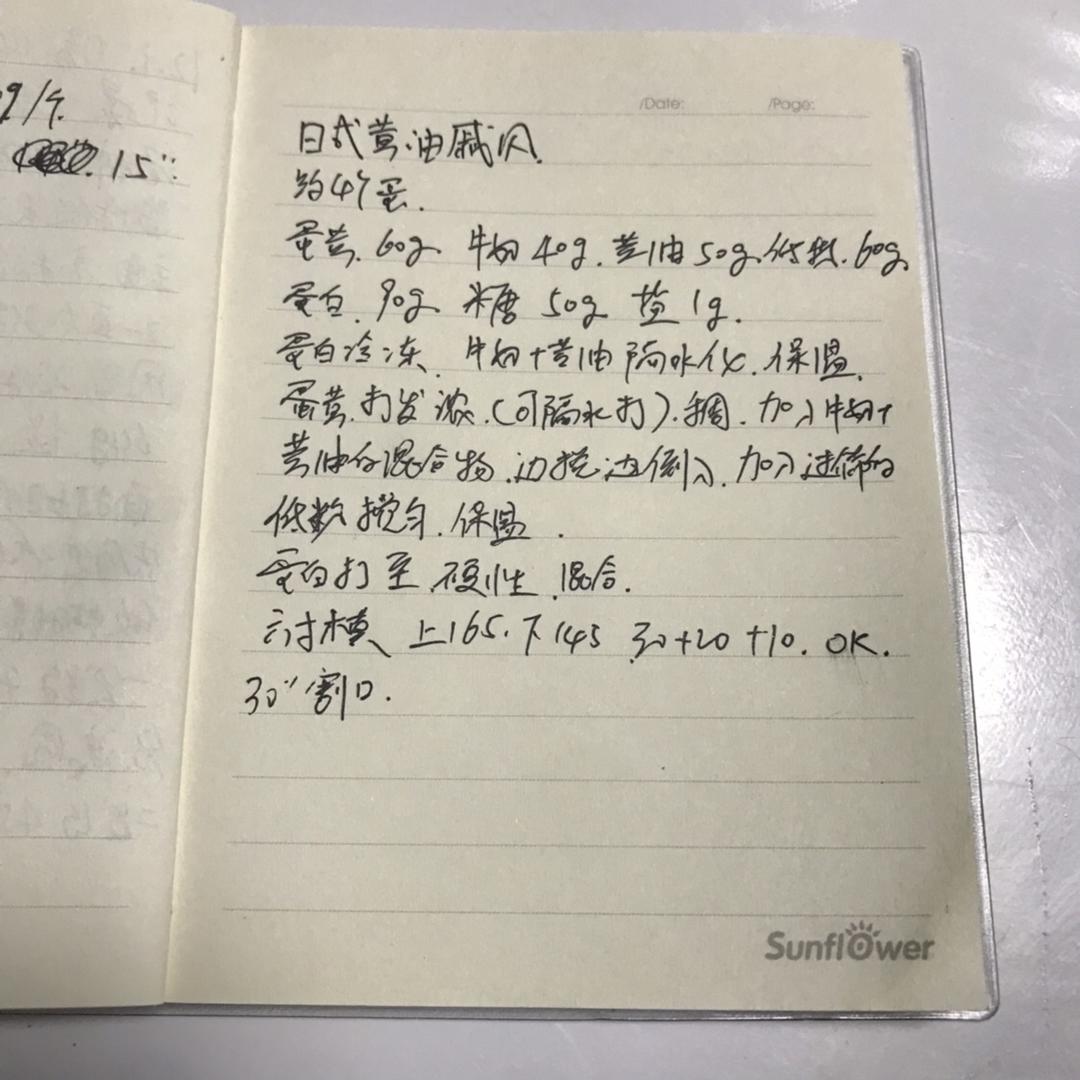 g/个.
15"
/Date: /Page:
日式黄油戚风.
约4个蛋.
蛋黄. 60g. 牛奶 40g. 黄油 50g. 低粉. 60g.
蛋白. 90g. 糖 50g 盐 1g.
蛋白冷冻. 牛奶+黄油 隔水化. 保温.
蛋黄. 打发 浓.(可隔水打). 稠. 加入牛奶+
黄油的混合物. 边搅边倒入. 加入过筛的
低粉 搅匀. 保温.
蛋白打至 硬性 混合.
上165. 下145 30+20+10. OK.
30" 割口.
Sunflower